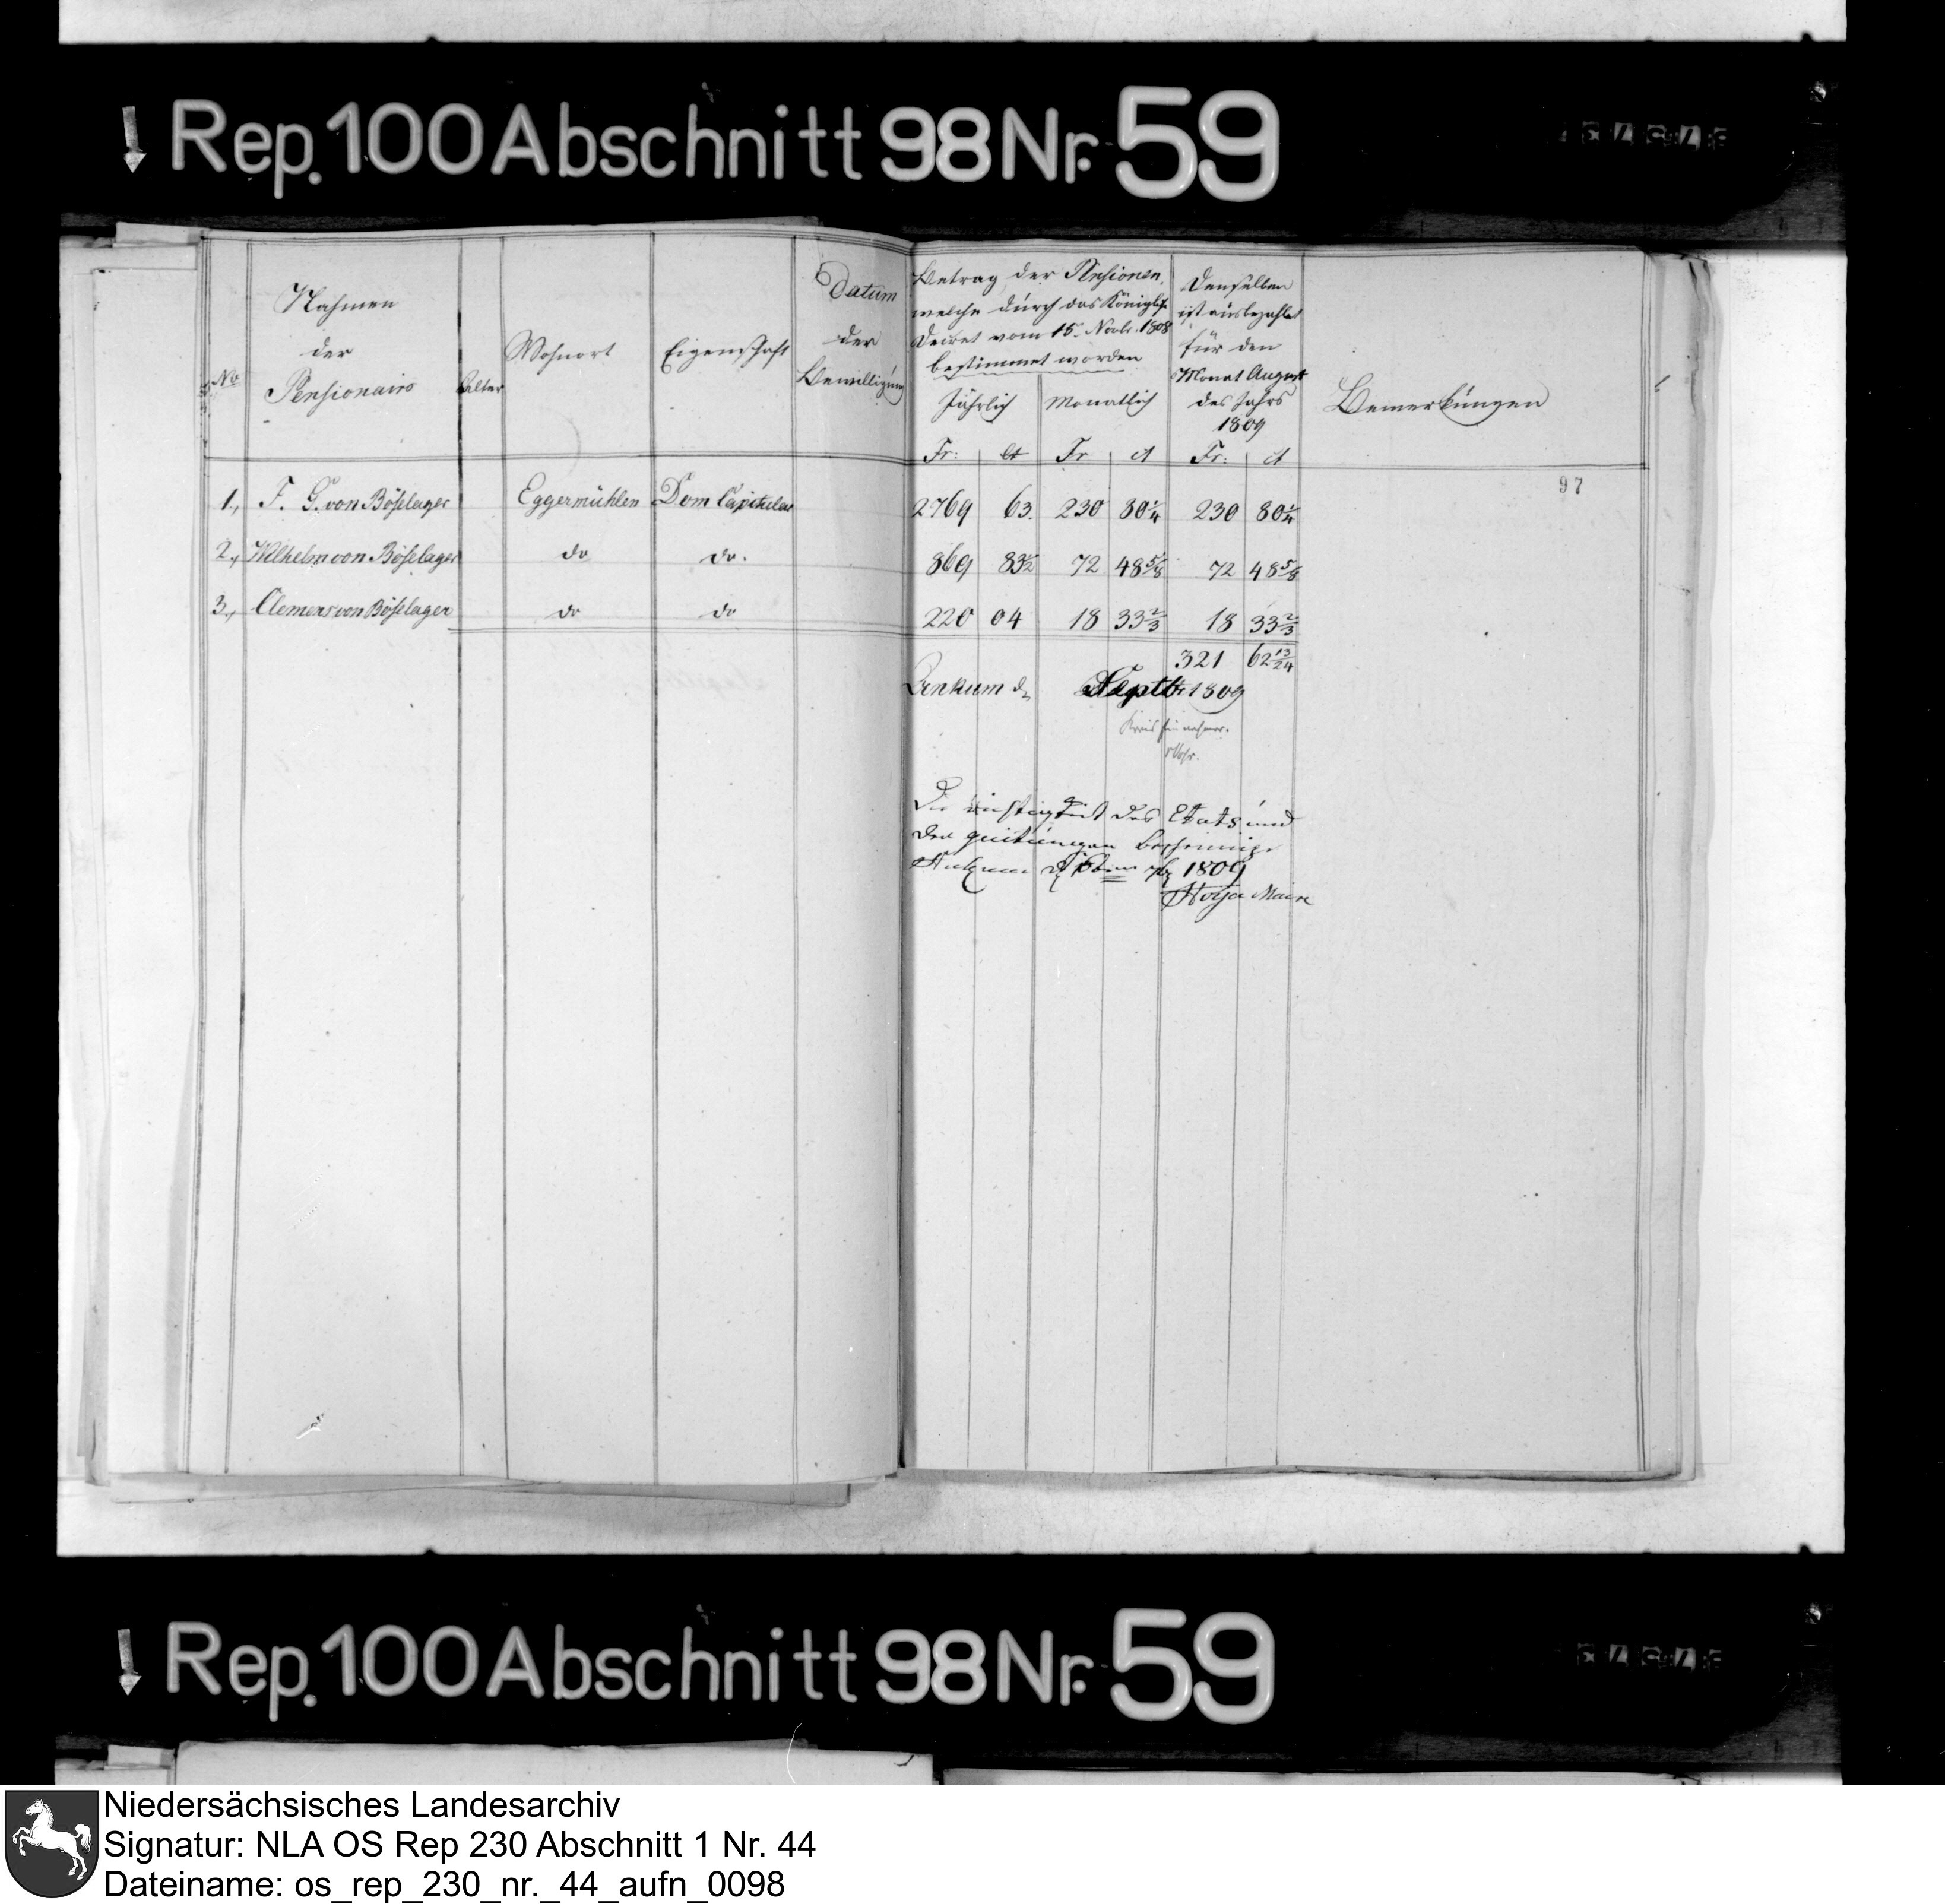 Rep. 100 Abschnitt 98 Nr. 59
No
Nahmen
der
Pensionairs
Alter
Wohnort
Eigenschaft
Datum
der
Bewilligung
Betrag der Pensionen,
welche durch das Königliche
Decret vom 15. Novbr. 1808
bestimmet worden
Jährlich Monatlich
Denselben
ist ausbezahlet
für den
Monat August
des Jahrs
1809
Bemerkungen
Fr: ct Fr ct Fr: ct
97
1., F. G. von Böselager Eggermühlen Dom Capitular 2769 63. 230 80 1/4 230 80 1/4
2., Wilhelm von Böselager do do. 869 83 1/2 72 48 5/8 72 48 5/8
3., Clemens von Böselager do do 220 04 18 33 2/3 18 33 2/3
321 62 13/24
Ankum d. Septbr 1809
Kreis Einnehmer.
Die Richtigkeit des Etats und
der quitungen bescheinige
Ankum 1809
Maire
Rep. 100 Abschnitt 98 Nr. 59
Niedersächsisches Landesarchiv
Signatur: NLA OS Rep 230 Abschnitt 1 Nr. 44
Dateiname: os_rep_230_nr._44_aufn_0098